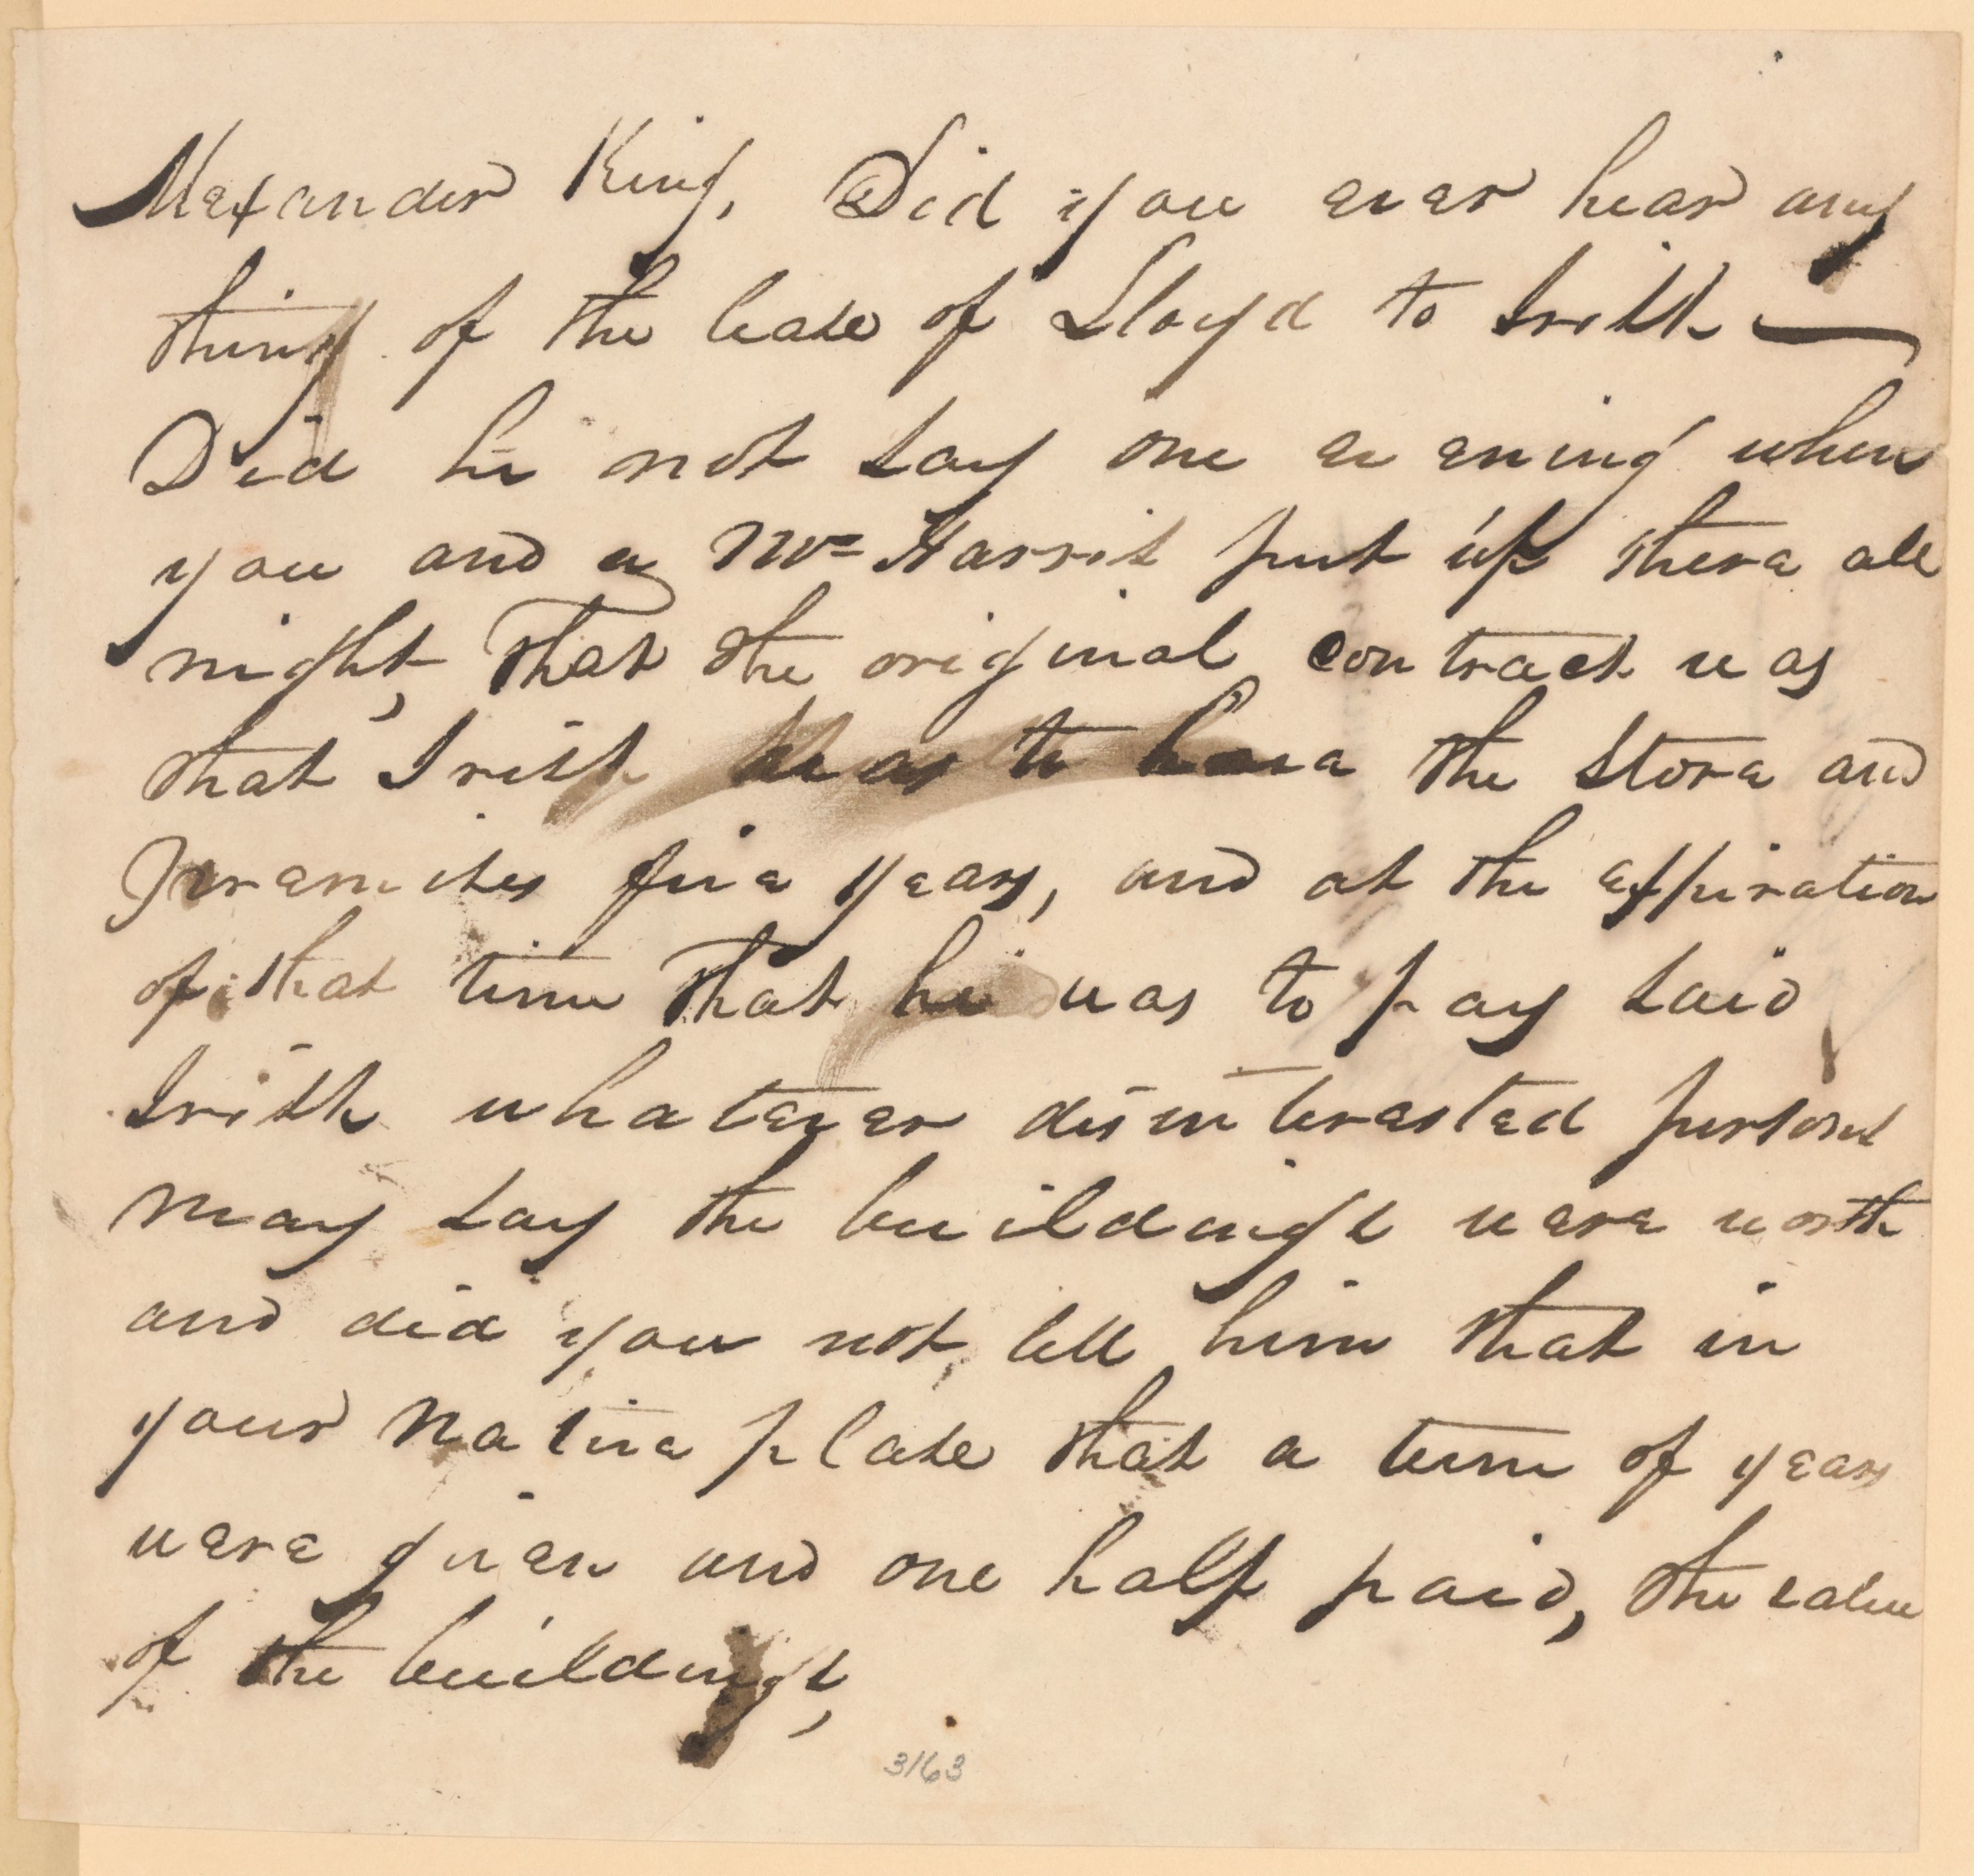 Alexander King, Did you ever hear any
thing of the lease of Lloyd to Irish —
Did he not say one evening when
you and a Mr Harris put up there all
night, That the original contract was
that Irish was to have the Store and
Premises five years, and at the expiration
of that time That he was to pay said
Irish whatever disinterested persons
may say the buildings were worth
and did you not tell him that in
your native place that a term of years
were given and one half paid, the value
of the buildings,
3163